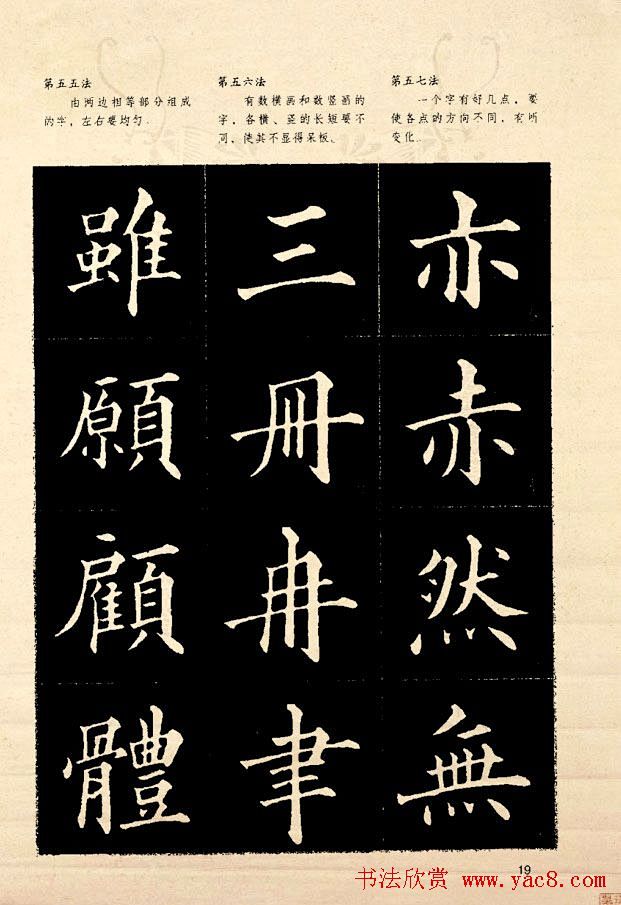 第五五法
由两边相等部分组成
的字，左右要均匀．
第五六法
有数横画和数竖画的
字，各横、竖的长短要不
同，使其不显得呆板．
第五七法
一个字有好几点，要
使各点的方向不同，有所
变化．
雖 三 亦
願 冊 赤
顧 冉 然
體 聿 無
19
书法欣赏 www.yac8.com